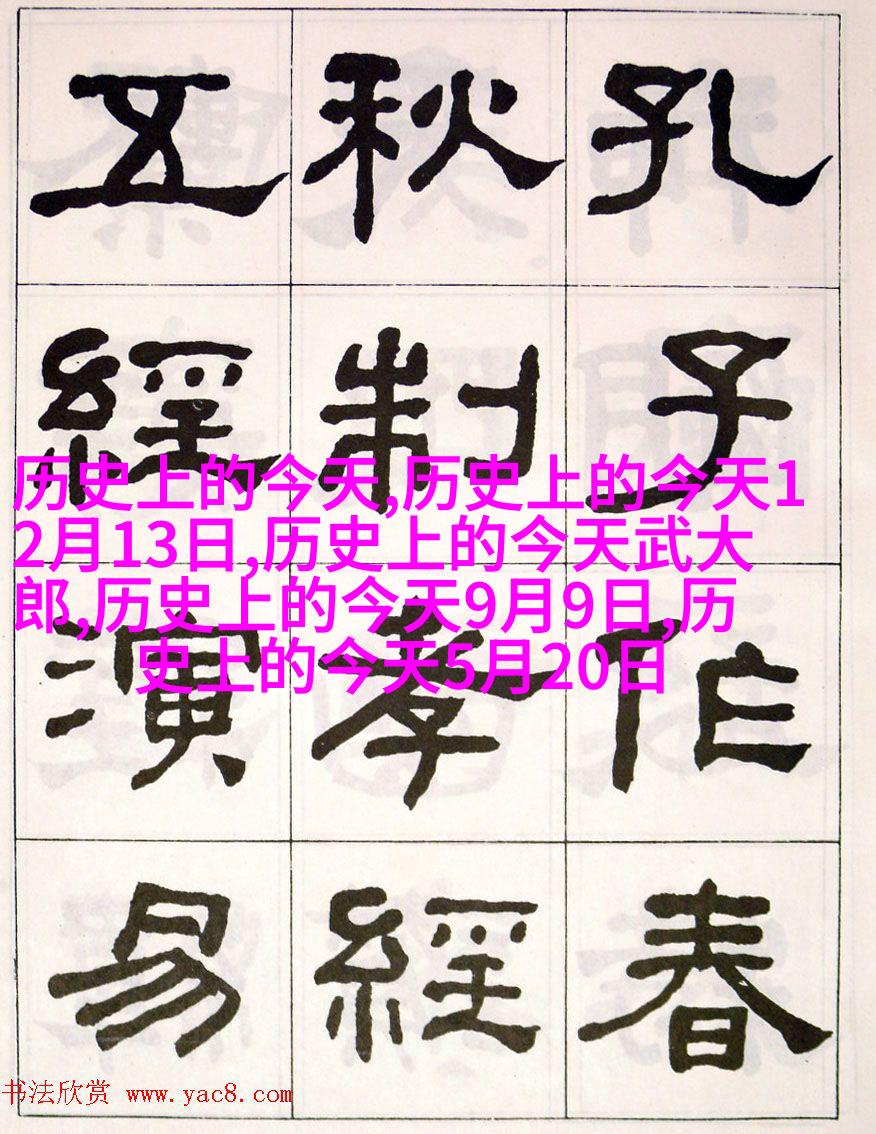 孔子作春
秋制孝經
五經演易
历史上的今天,历史上的今天1
2月13日,历史上的今天武大
郎,历史上的今天9月9日,历
史上的今天5月20日
书法欣赏 www.yac8.com